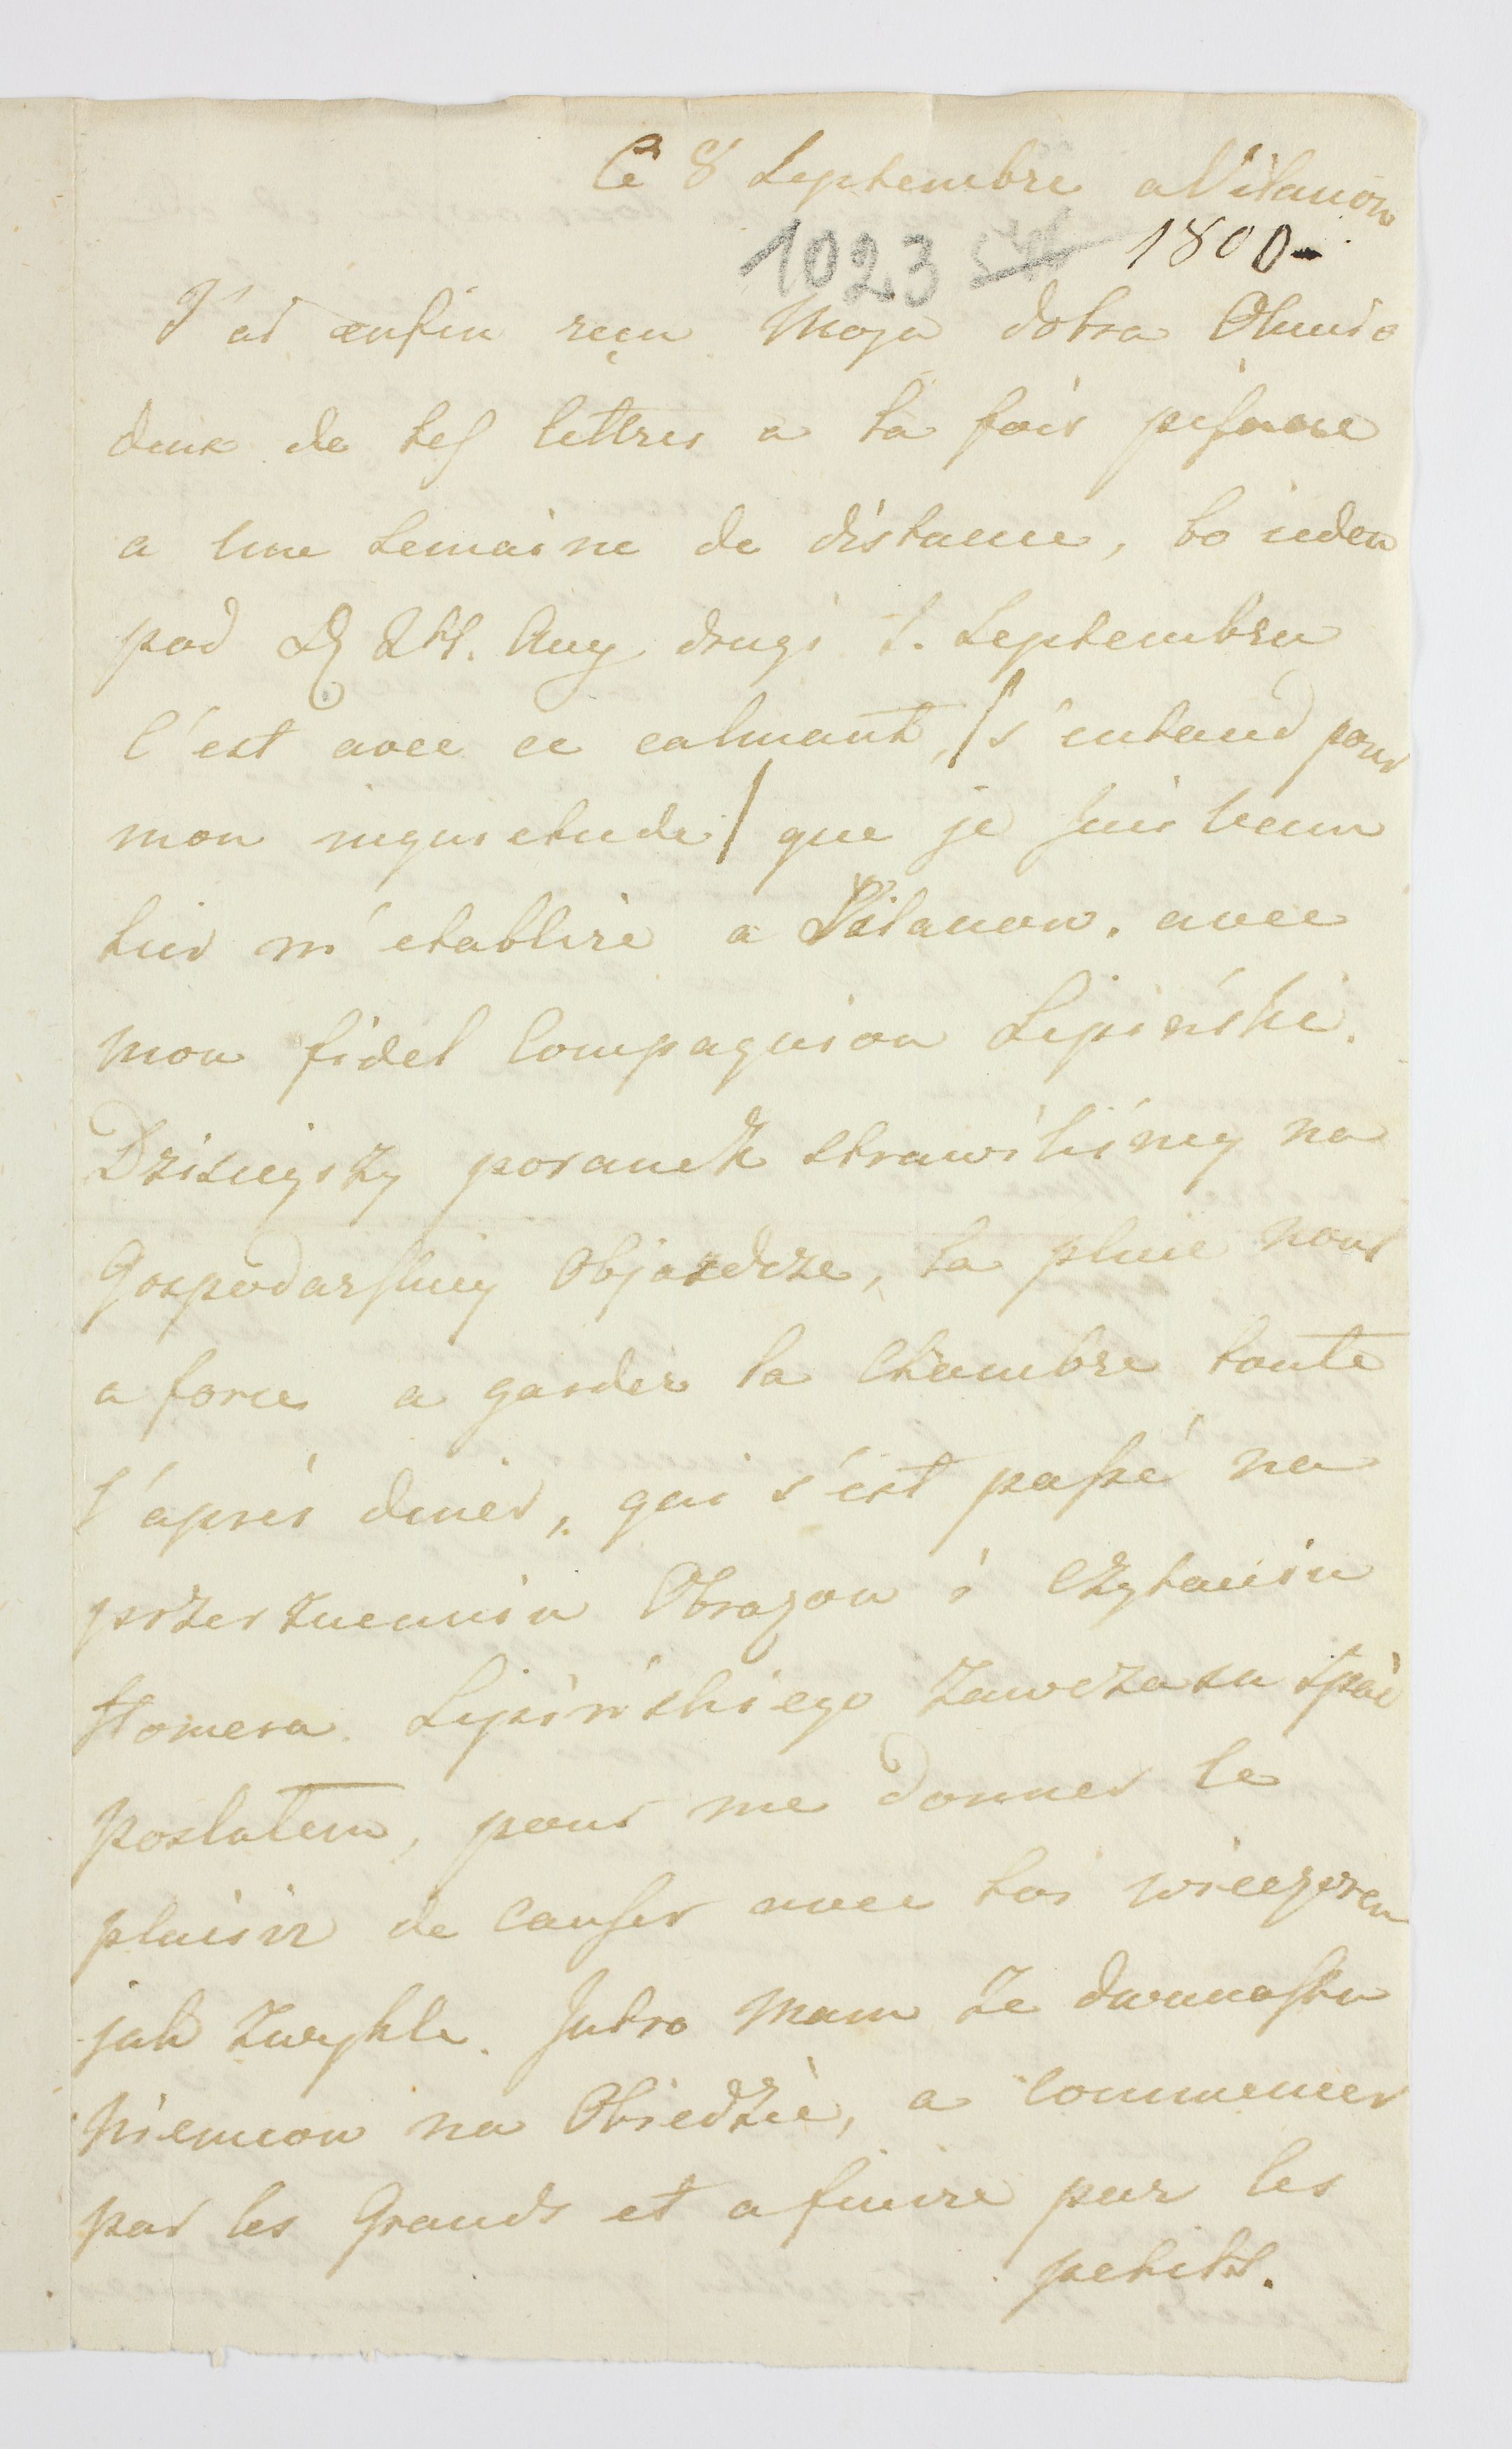 Ce 8 Septembre a Vilanow
1023 1800
J'ai enfin reçu Moja dobra Olunio
deux de tes lettres a la fois pisane
a une Semaine de distance, bo ieden
pod D 24. Aug drugi 1. Septembra
C'est avec ce calmant, /s'entand pour
mon inquietude/ que je suis venu
hier m'etablire a Vilanow. avec
mon fidel Compagnion Lipiński.
Dzisieyszy poranek strawiliśmy na
Gospodarskiey Objazdzce, la pluie nous
a force a garder la Chambre toute
l'aprés diner, qui s'est passé na
przerznceniu Obrazow i Czytaniu
Homera. Lipińskiego zawczasu spać
posłałem, pour me donner le
plaisir de causer avec toi wieczorem
jak zwykle. Jutro Mam ze dwunastu
Niemcow na Obiedzie, a commencer
par les Grands et a finire par les
petits.